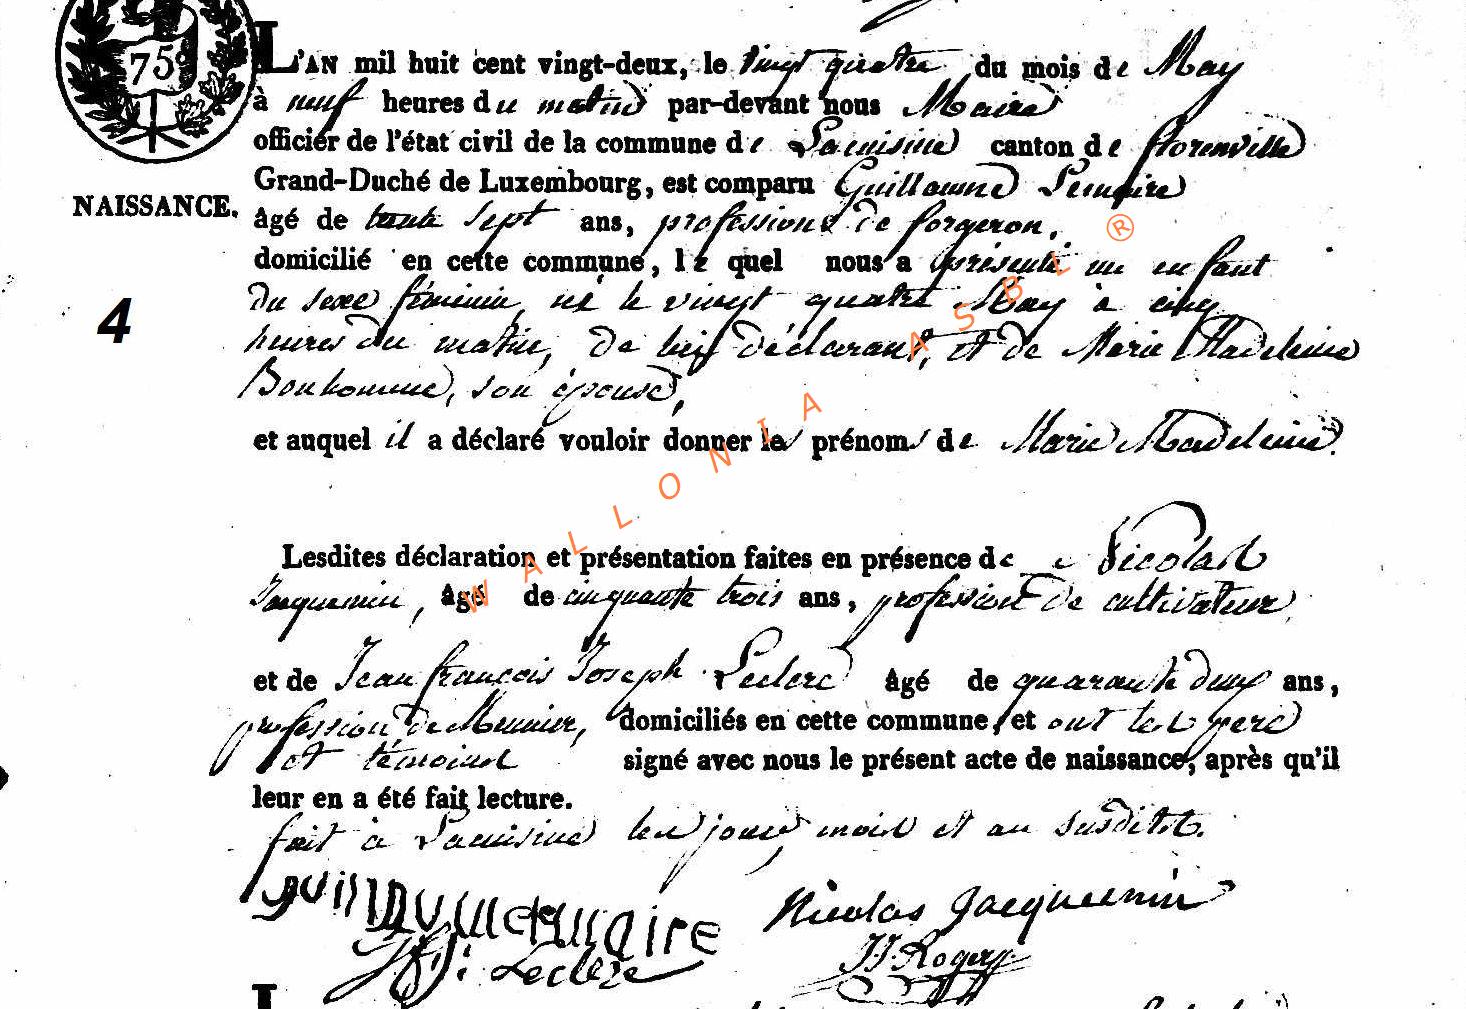 75c
L'AN mil huit cent vingt-deux, le vingt quatre du mois de May
à neuf heures du matin par-devant nous Maire
officier de l'état civil de la commune de Lacuisine canton de florenville
Grand-Duché de Luxembourg, est comparu Guillaume Lemaire
NAISSANCE.
âgé de trente sept ans, profession de forgeron,
domicilié en cette commune, le quel nous a présenté un enfant
4
du sexe féminin, né le vingt quatre May à cinq
heures du matin, de lui déclarant, et de Marie Madeleine
Bonhomme, son épouse,
et auquel il a déclaré vouloir donner les prénoms de Marie Madeleine.
WALLONIA ASBL ®
Lesdites déclaration et présentation faites en présence de Nicolas
Jacquemin, âgé de cinquante trois ans, profession de cultivateur,
et de Jean françois Joseph Leclerc âgé de quarante deux ans,
profession de Meunier, domiciliés en cette commune, et ont les pere
et témoins signé avec nous le présent acte de naissance, après qu'il
leur en a été fait lecture.
fait à Lacuisine les jour, mois et an susdits.
Nicolas Jacquemin
Leclere
J.J. Rogery